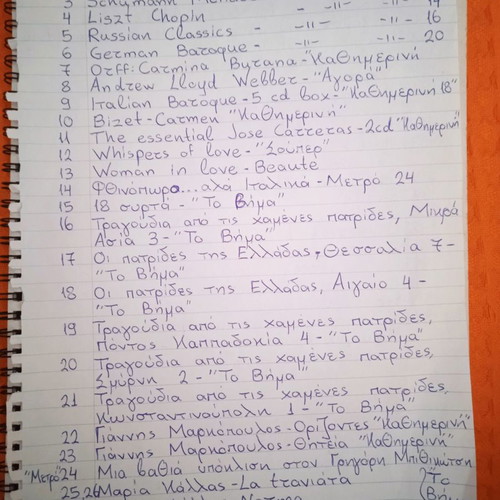 3 Schumann -"- 14
4 Liszt Chopin -"- -"- 16
5 Russian Classics - -"- 20
6 German Baroque -
7 Orff: Carmina Burana - "Καθημερινή"
8 Andrew Lloyd Webber - "Αγορά"
9 Italian Baroque - 5 cd box - "Καθημερινή 18"
10 Bizet - Carmen "Καθημερινή"
11 The essential Jose Carreras - 2cd "Καθημερινή"
12 Whispers of love - "Σούπερ"
13 Woman in love - Beauté
14 Φθινόπωρο... αλά Ιταλικά - Μετρό 24
15 18 συρτά - "Το Βήμα"
16 Τραγούδια από τις χαμένες πατρίδες, Μικρά
Ασία 3 - "Το Βήμα"
17 Οι πατρίδες της Ελλάδας, Θεσσαλία 7 -
"Το Βήμα"
18 Οι πατρίδες της Ελλάδας, Αιγαίο 4 -
"Το Βήμα"
19 Τραγούδια από τις χαμένες πατρίδες,
Πόντος Καππαδοκία 4 - "Το Βήμα"
20 Τραγούδια από τις χαμένες πατρίδες,
Σμύρνη 2 - "Το Βήμα"
21 Τραγούδια από τις χαμένες πατρίδες,
Κωνσταντινούπολη 1 - "Το Βήμα"
22 Γιάννης Μαρκόπουλος - Ορίζοντες "Καθημερινή"
23 Γιάννης Μαρκόπουλος - Θητεία "Καθημερινή"
"Μετρό" 24 Μια βαθιά υπόκλιση στον Γρηγόρη Μπιθικώτση
25,26 Μαρία Κάλλας - La traviata "Το
Βήμα